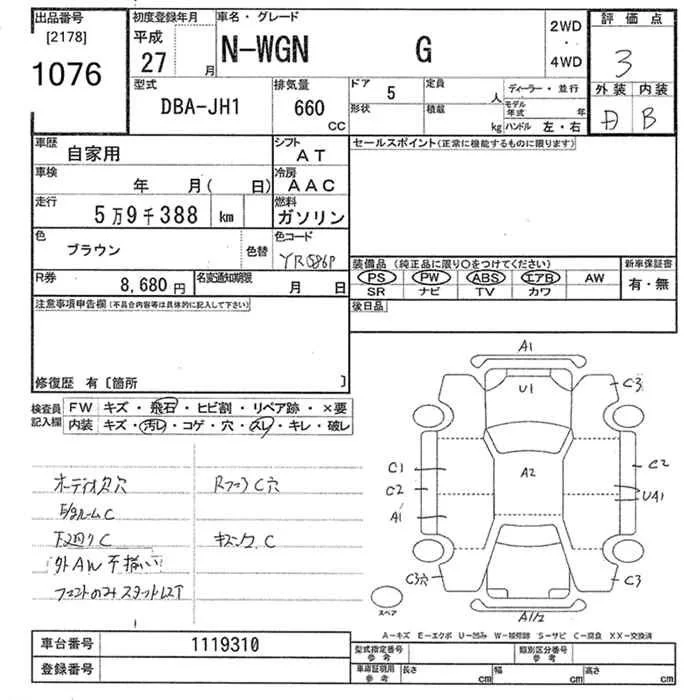 出品番号 初度登録年月 車名・グレード 2WD ・ 4WD 評価点
[2178] 1076 平成 27 月 N-WGN G 3
型式 DBA-JH1 排気量 660 CC ドア 5 定員 人 ディーラー・並行 外装 内装
形状 積載 kg モデル年式 年 ハンドル 左・右 B
車歴 自家用 シフト AT セールスポイント(正常に機能するものに限ります)
車検 年 月( 日) 冷房 AAC
走行 5万9千388 km 燃料 ガソリン
色 ブラウン 色替 色コード YR586P
装備品 (純正品に限り○をつけてください) 新車保証書
R券 8,680円 名変通知期限 月 日 PS PW ABS エアB AW 有・無
SR ナビ TV カワ
注意事項申告欄(不具合内容等は具体的に記入して下さい) 後日品
修復歴 有〔箇所 〕
検査員記入欄 FW キズ・飛石・ヒビ割・リペア跡・×要
内装 キズ・汚レ・コゲ・穴・スレ・キレ・破レ
オーディオ欠穴 RフックC穴
E/gルームC
下廻りC キャスックC
外AW不揃い
フロントのみスタットレスT
A1
U1
C3
C1 A2 C2
C2 UA1
A1
C3穴 C3
スペア A1/2
A-キズ E-エクボ U-凹み W-補修跡 S-サビ C-腐食 XX-交換済
車台番号 1119310 型式指定番号 参考 類別区分番号 参考
登録番号 車庫証明用 参考 長さ cm 幅 cm 高さ cm